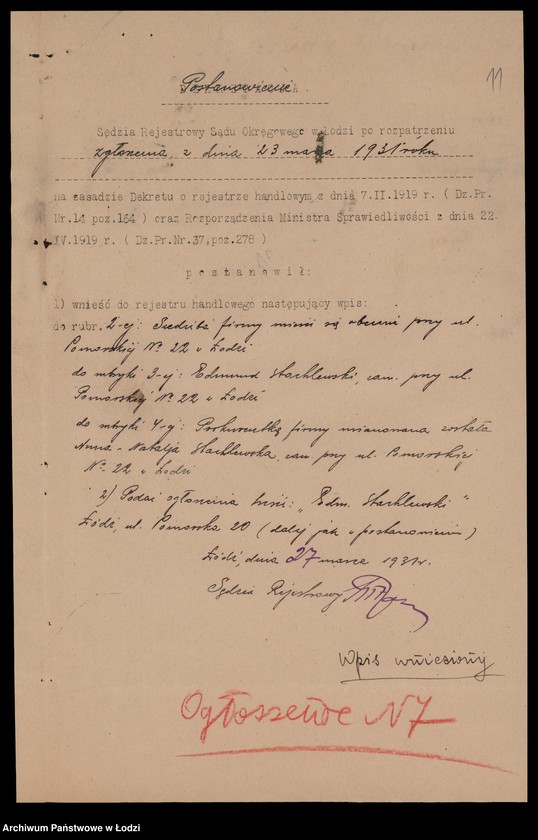 11
Postanowienie
Sędzia Rejestrowy Sądu Okręgowego w Łodzi po rozpatrzeniu
zgłoszenia z dnia 23 marca 1931 roku
na zasadzie Dekretu o rejestrze handlowym z dnia 7.II.1919 r. ( Dz.Pr.
Nr.14 poz.164 ) oraz Rozporządzenia Ministra Sprawiedliwości z dnia 22.
IV.1919 r. ( Dz.Pr.Nr.37,poz.278 )
postanowił:
1) wnieść do rejestru handlowego następujący wpis:
do rubr. 2-ej: Siedziba firmy mieści się obecnie przy ul.
Pomorskiej No 22 w Łodzi
do rubryki 3-ej: Edmund Stachlewski, zam. przy ul.
Pomorskiej No 22 w Łodzi
do rubryki 4-ej: Prokurentką firmy mianowana została
Anna-Natalja Stachlewska, zam przy ul. Pomorskiej
No 22 w Łodzi
2) Podać ogłoszenia treści: „Edm. Stachlewski"
Łódź, ul. Pomorska 20 (dalej jak w postanowieniu)
Łódź, dnia 27 marca 1931 r.
Sędzia Rejestrowy
Wpis wniesiony
Ogłoszenie N 7
Archiwum Państwowe w Łodzi